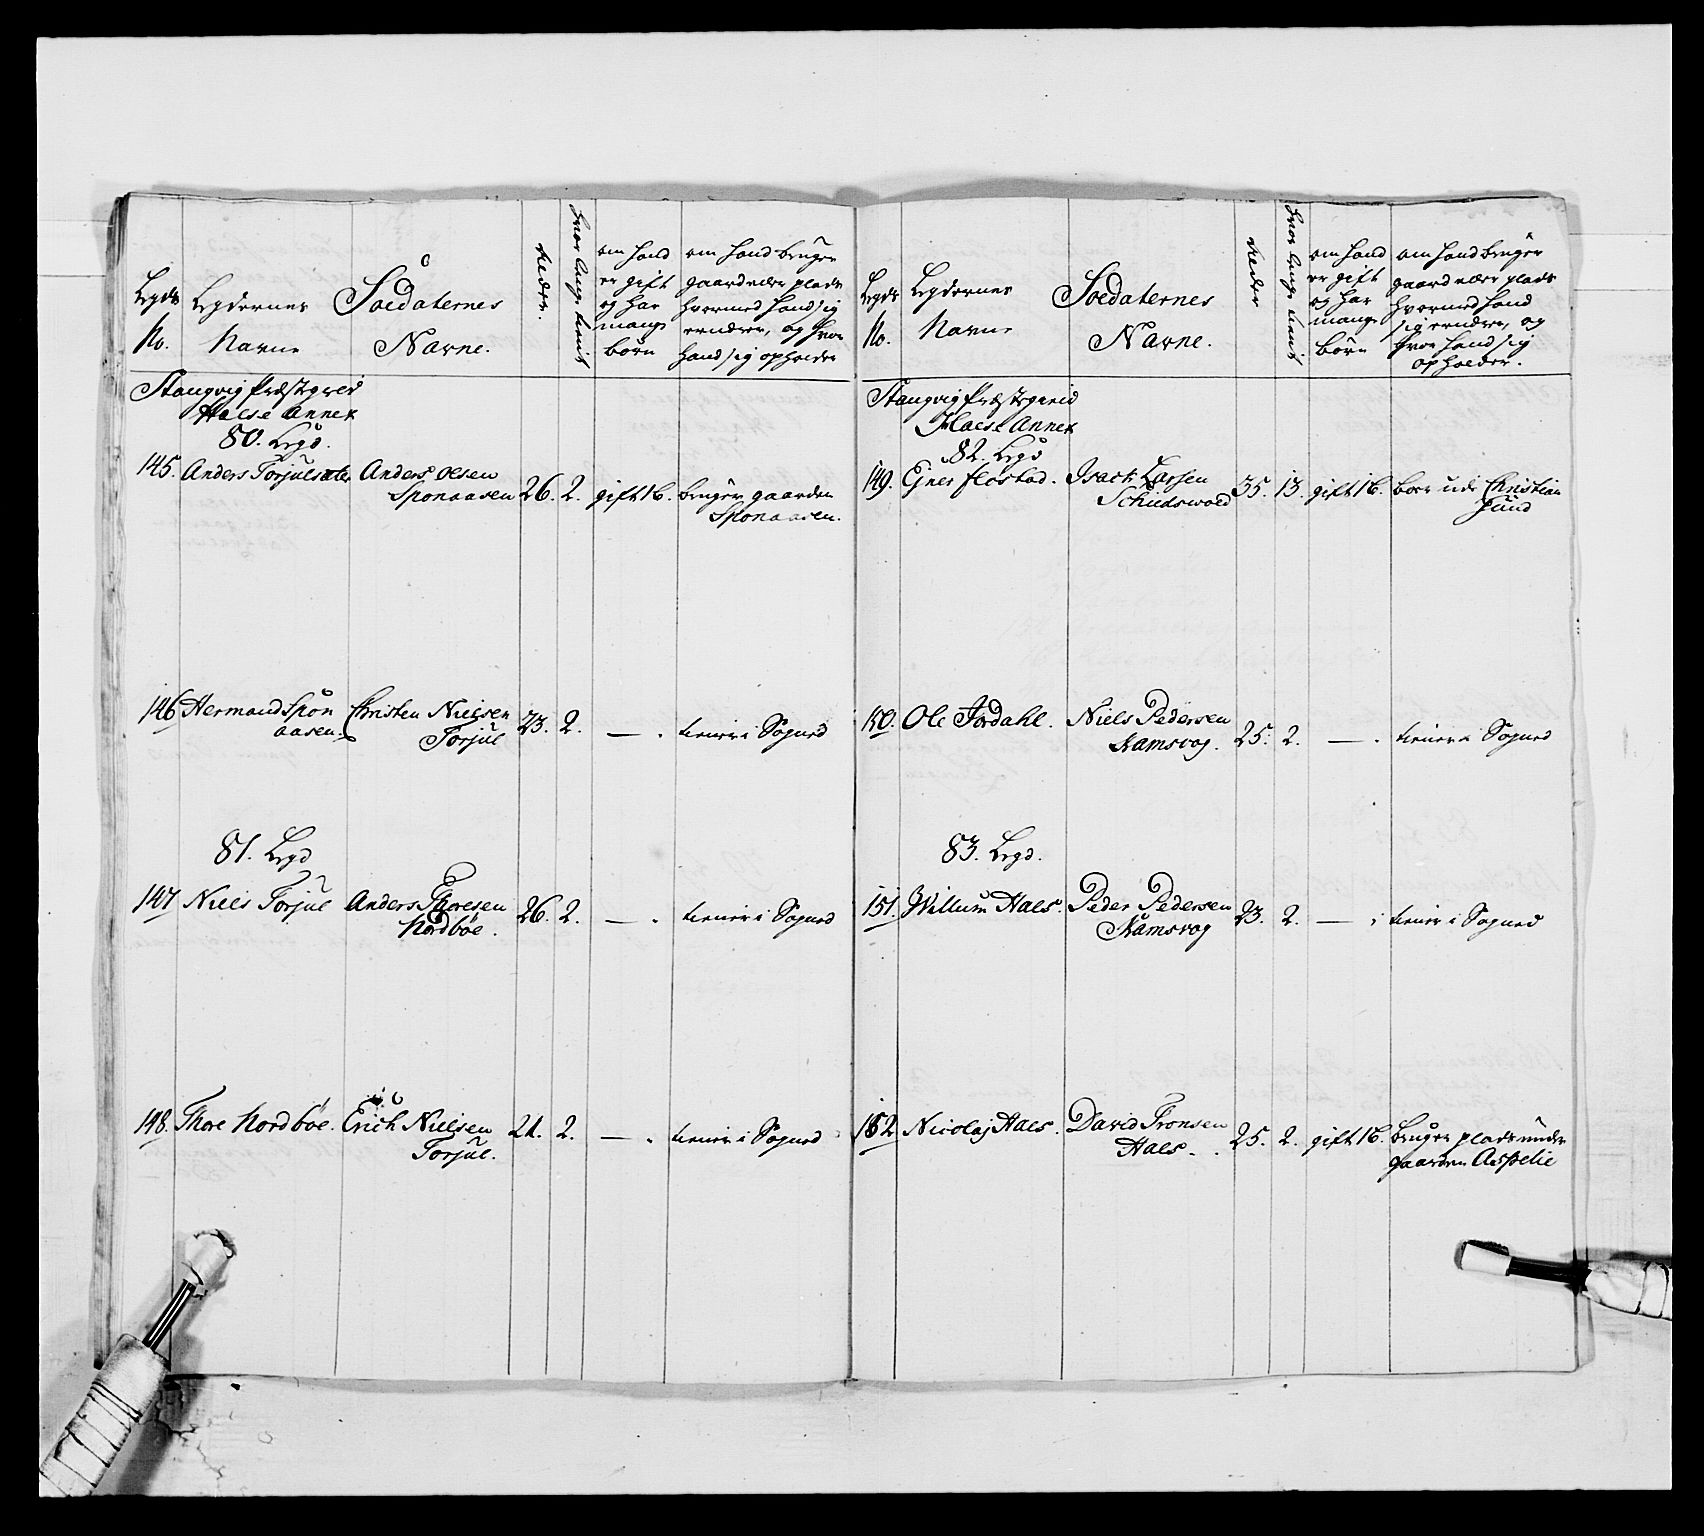 Legds No.
Legdernes Navne
Soldaternes Navne.
Alder.
hvor lenge tient
om hand er gift og har mange børn
om hand bruger gaard eller plads hvormed hand sig ernærer, og hvor hand sig opholder
Stangvig Præstegield
Halse Annex
80. Legd.
145. Anders Torjulsæter Anders Olsen 26. 2. gift 1 b. bruger gaarden
Sponaasen Sponaasen.
146 Hermand Spon Christen Nielsen 23. 2. — . tiener i Sogned
aasen. Torjul
81. Legd
147 Niels Torjul Anders Thoresen 26. 2. — . tiener i Sogned
Nordbøe.
148. Thore Nordbøe. Erich Nielsen 21. 2. — . tiener i Sogned
Torjul.
Legds No.
Legdernes Navne
Soldaternes Navne.
Alder
hvor lenge tient
om hand er gift og har mange børn
om hand bruger gaard eller plads hvormed hand sig ernærer, og hvor hand sig opholder.
Stangvig Præstegield
Halse Annex
82. Legd
149. Ejner Flostad. Isach Larsen 35. 13. gift 1 b. boer udi Christian
sund
150. Ole Jordahl. Niels Pedersen 25. 2. — . tiener i Sogned
Ramsvog.
83. Legd.
151. Willum Hals. Peder Pedersen 23. 2. — . tiener i Sogned
Ramsvog
152 Nicolaj Hals. David Tronsen 25. 2. gift 1 b. bruger plads under
Hals. gaarden Aspelie